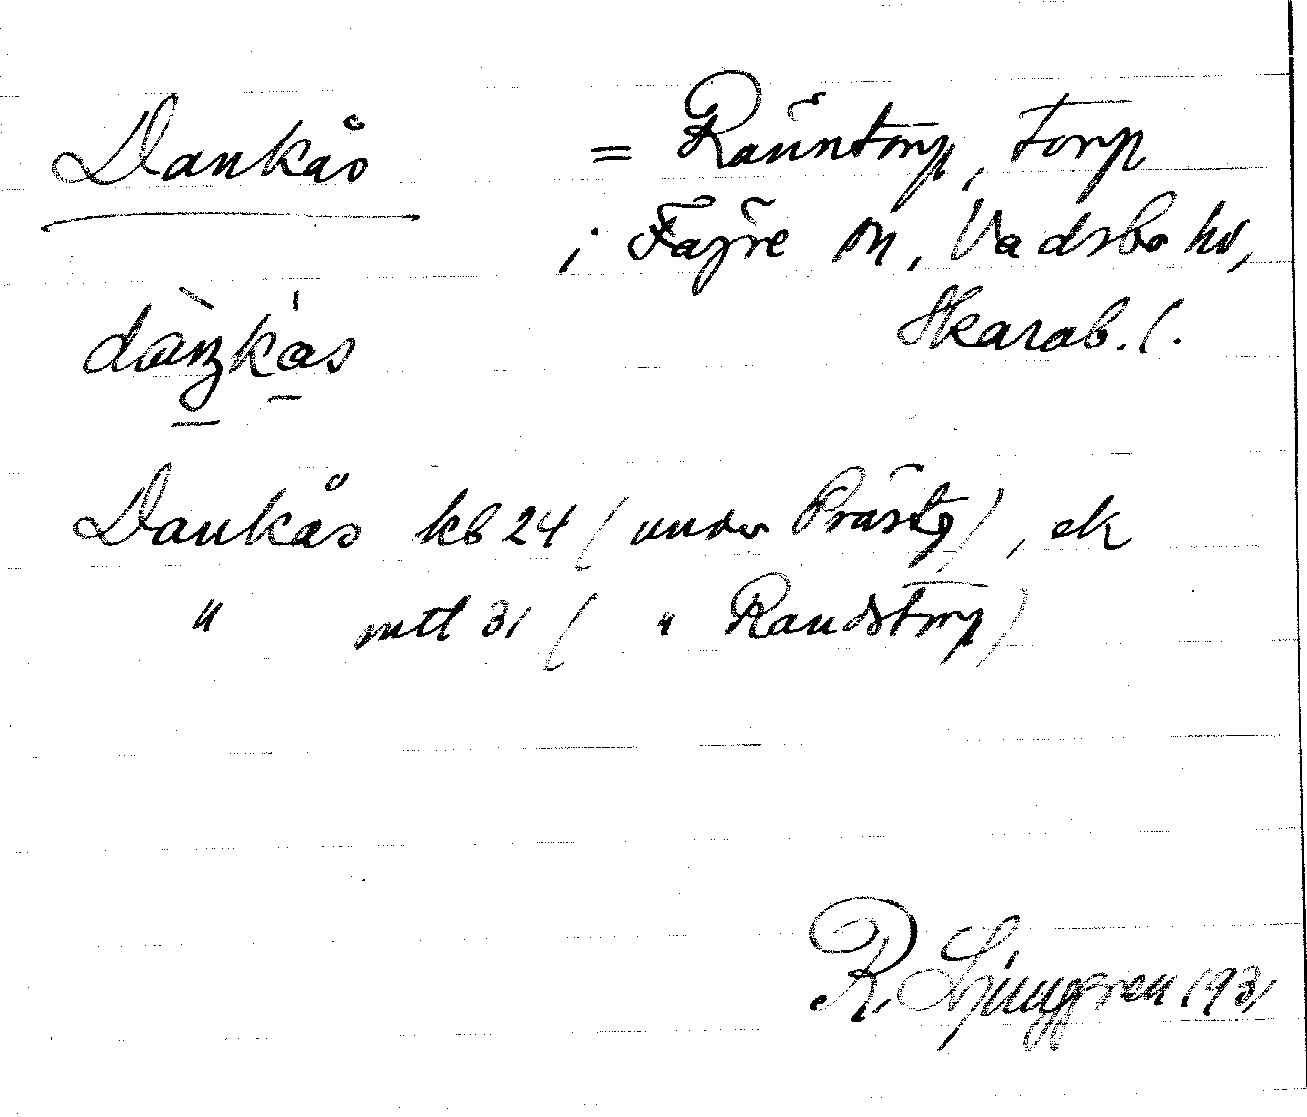 Dankås = Ränntorp, Torp
i Fägre sn, Vadsbo hd,
Skarab. l.
Dankås kb 24 (under Prästg), ek
" mtl 31 ( " Randstorp)
R. Ljunggren 1931